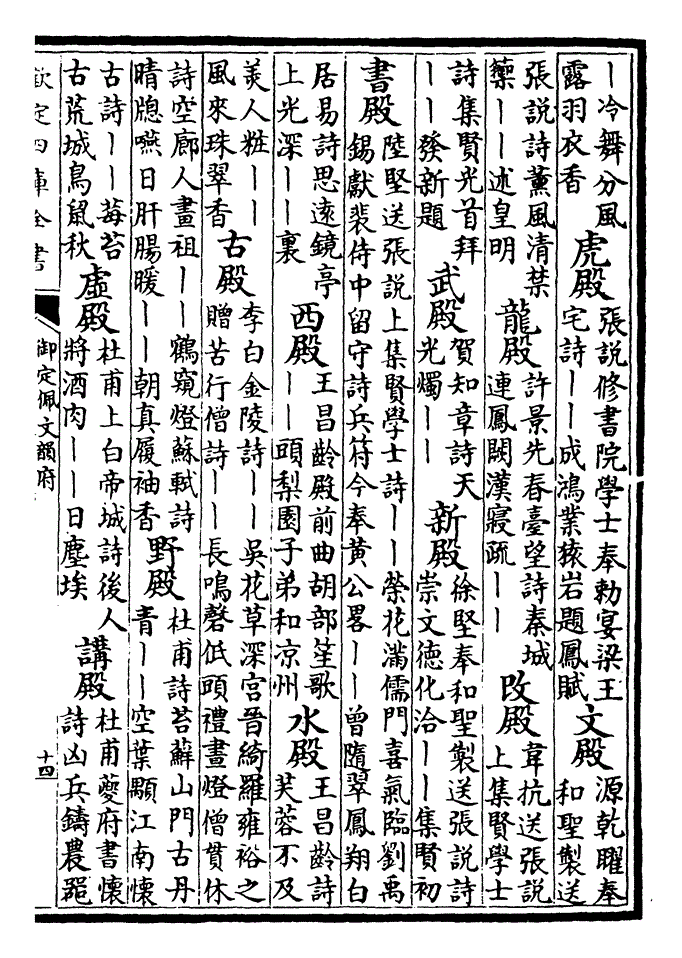 丨冷舞分風
露羽衣香
虎殿
張說修書院學士奉勅宴梁王
宅詩丨丨成鴻業猿岩題鳳賦
文殿
源乾曜奉
和聖製送
張說詩薰風清禁
籞丨丨述皇明
龍殿
許景先春臺望詩秦城
連鳳闕漢寢疏丨丨
改殿
韋抗送張說
上集賢學士
詩集賢光首拜
丨丨發新題
武殿
賀知章詩天
光燭丨丨
新殿
徐堅奉和聖製送張說詩
崇文德化洽丨丨集賢初
書殿
陸堅送張說上集賢學士詩丨丨榮花滿儒門喜氣臨劉禹
錫獻裴侍中留守詩兵符今奉黃公畧丨丨曾隨翠鳳翔白
居易詩思遠鏡亭
上光深丨丨裏
西殿
王昌齡殿前曲胡部笙歌
丨丨頭梨園子弟和凉州
水殿
王昌齡詩
芙蓉不及
羙人粧丨丨
風來珠翠香
古殿
李白金陵詩丨丨吳花草深宮晉綺羅雍裕之
贈苦行僧詩丨丨長鳴磬低頭禮晝燈僧貫休
詩空廊人畫祖丨丨鶴窺燈蘇軾詩
晴牕嚥日肝腸暖丨丨朝真履袖香
野殿
杜甫詩苔蘚山門古丹
青丨丨空葉顒江南懷
古詩丨丨莓苔
古荒城鳥鼠秋
虛殿
杜甫上白帝城詩後人
將酒肉丨丨日塵埃
講殿
杜甫夔府書懷
詩凶兵鑄農噐
欽定四庫全書
御定佩文韻府
十四